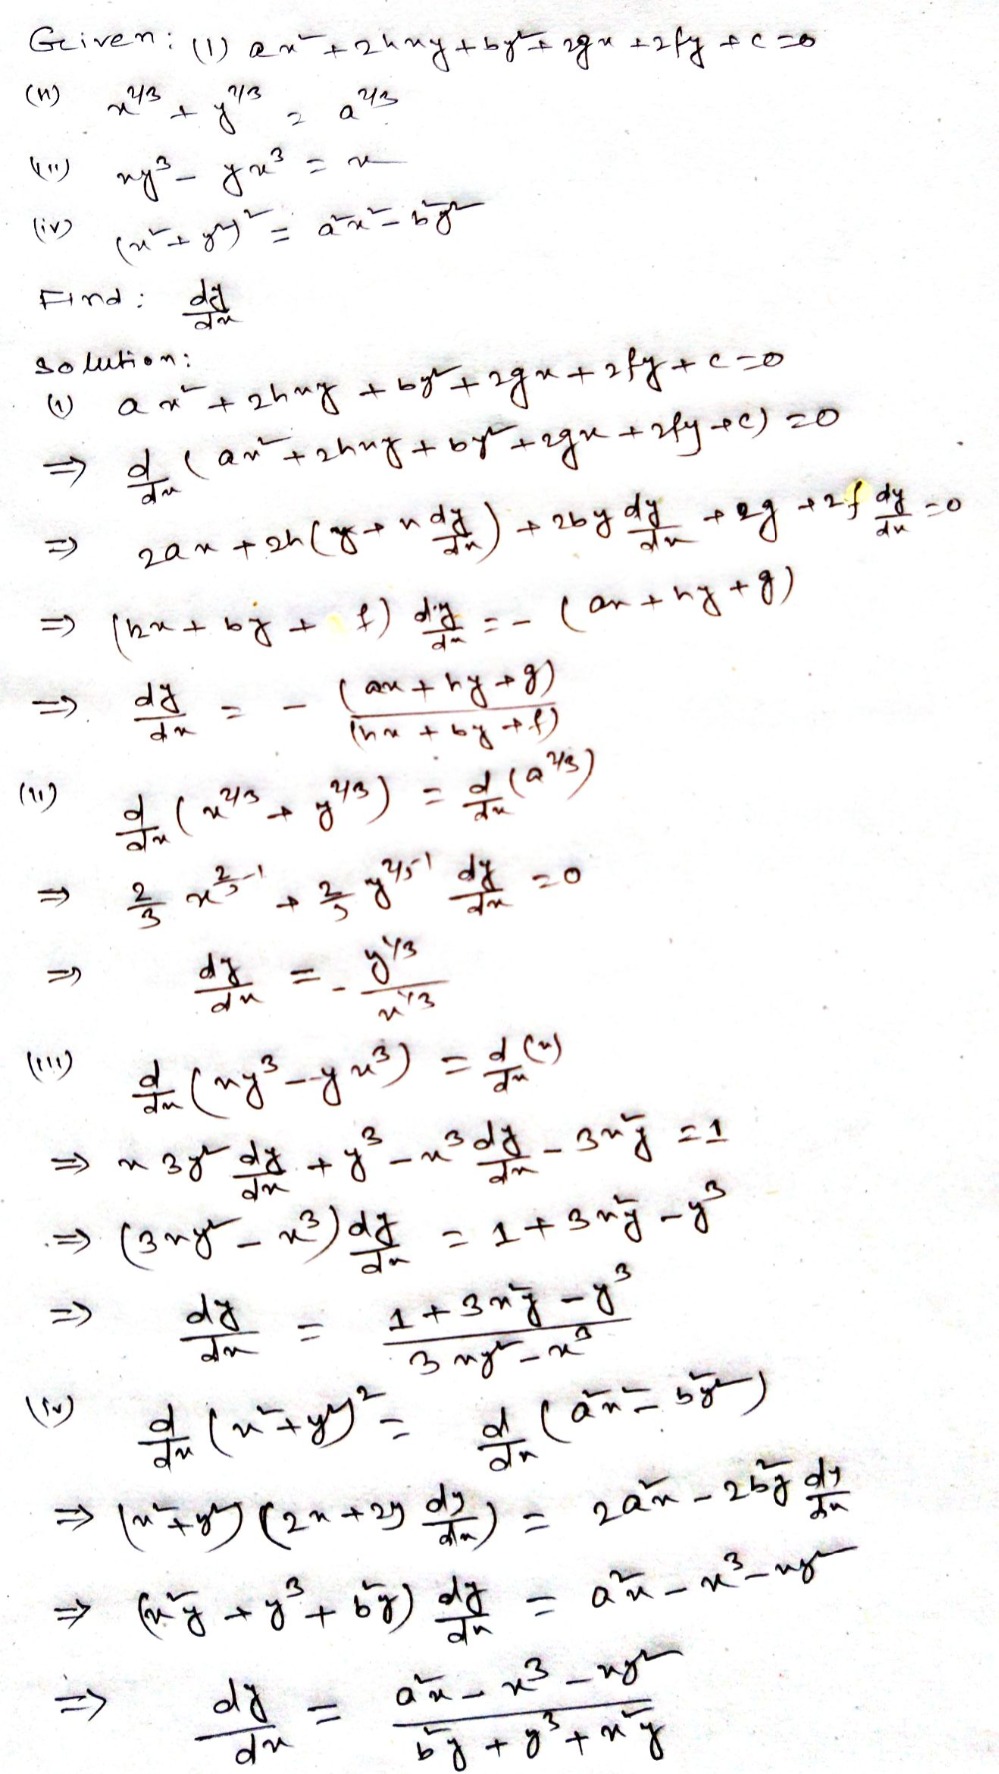 Given: (i) ax² + 2hxy + by² + 2gx + 2fy + c = 0
(ii) x^{2/3} + y^{2/3} = a^{2/3}
(iii) xy³ - yx³ = x
(iv) (x² + y²)² = a²x² - b²y²
Find: dy/dx
Solution:
(i) ax² + 2hxy + by² + 2gx + 2fy + c = 0
⇒ d/dx (ax² + 2hxy + by² + 2gx + 2fy + c) = 0
⇒ 2ax + 2h(y + x dy/dx) + 2by dy/dx + 2g + 2f dy/dx = 0
⇒ (hx + by + f) dy/dx = - (ax + hy + g)
⇒ dy/dx = - (ax + hy + g)/(hx + by + f)
(ii) d/dx (x^{2/3} + y^{2/3}) = d/dx (a^{2/3})
⇒ 2/3 x^{2/3 - 1} + 2/3 y^{2/3 - 1} dy/dx = 0
⇒ dy/dx = - y^{1/3}/x^{1/3}
(iii) d/dx (xy³ - yx³) = d/dx (x)
⇒ x 3y² dy/dx + y³ - x³ dy/dx - 3x²y = 1
⇒ (3xy² - x³) dy/dx = 1 + 3x²y - y³
⇒ dy/dx = (1 + 3x²y - y³)/(3xy² - x³)
(iv) d/dx (x² + y²)² = d/dx (a²x² - b²y²)
⇒ (x² + y²) (2x + 2y dy/dx) = 2a²x - 2b²y dy/dx
⇒ (x²y + y³ + b²y) dy/dx = a²x - x³ - xy²
⇒ dy/dx = (a²x - x³ - xy²)/(b²y + y³ + x²y)